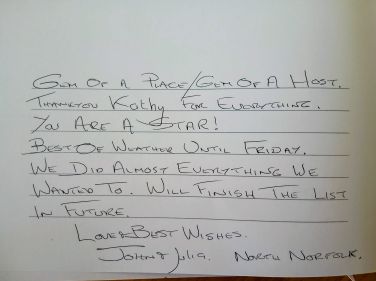 Gem Of A Place/Gem Of A Host.
Thankyou Kathy For Everything.
You Are A Star!
Best Of Weather Until Friday.
We Did Almost Everything We
Wanted To. Will Finish The List
In Future.
Love & Best Wishes.
John & Julia. North Norfolk.